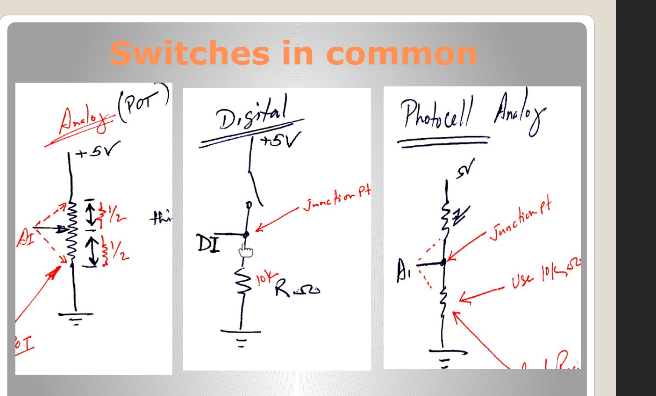 Switches in common
Analog (POT)
+5V
AI
1/2
1/2
thi
Digital
+5V
Junction Pt
DI
10K
R Ω
Photocell Analog
5V
Junction Pt
A1
Use 10K Ω